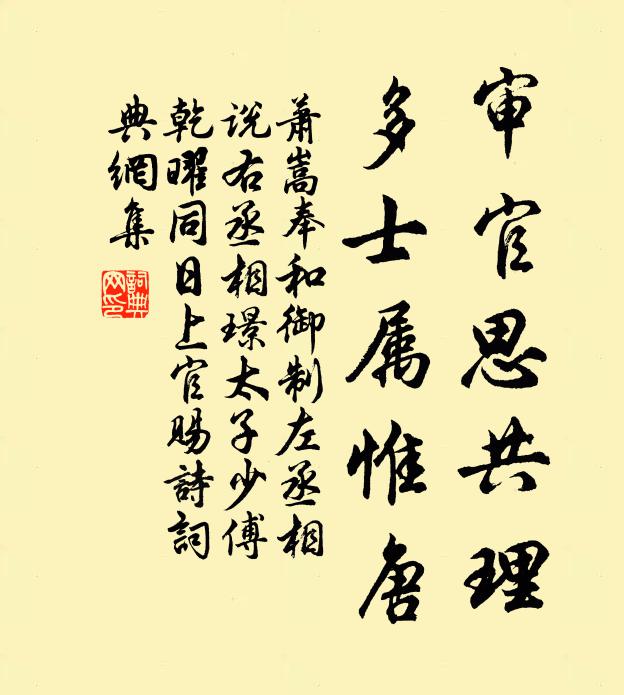 审官思共理
多士属惟唐
萧嵩奉和御制左丞相
说右丞相璟太子少傅
乾曜同日上官賜詩詞
典網集
詞典網印